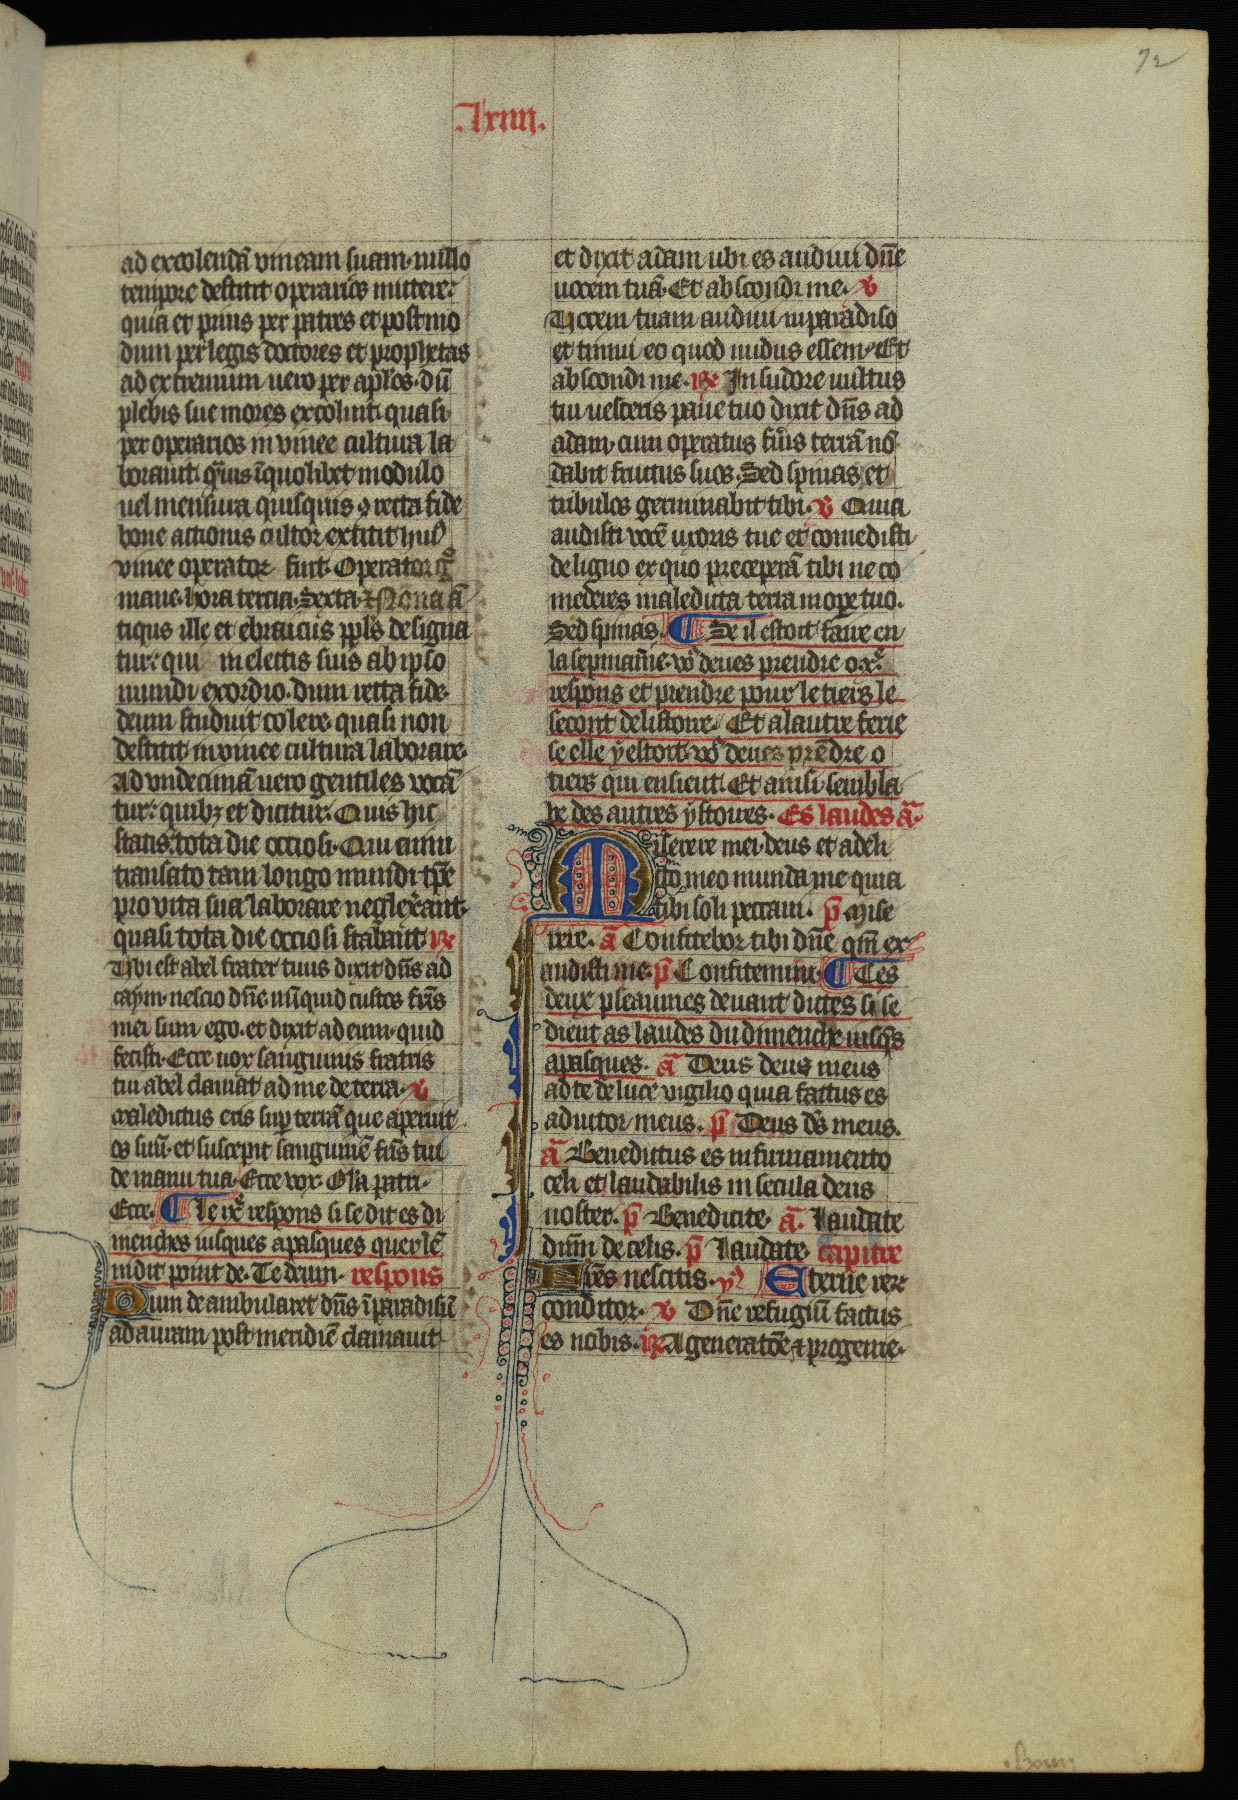 72
.lxiiii.
ad excolendā vineam suam nullo
tempore destitit operarios mittere:
quia et prius per patres et postmo
dum per legis doctores et prophetas
ad extremum uero per aplōs. dū
plebis sue mores excolint quasi
per operarios in vinee cultura la
borauit. qͣuis ī quolibet modulo
uel mensura quisquis ꝯ recta fide
bone actionis cultor extitit huiꝰ
vinee operator fuit. Operator gͦ
mane. hora tercia. Sexta. ⁊ Nona ā
tiqus ille et ebraicus ppl̄s designa
tur: qui in electis suis ab ipso
mundi exordio. dum recta fide
deum studuit colere. quasi non
destitit in vinee cultura laborare.
Ad vndecimā uero gentiles vocā
tur: quibꝫ et dicitur. Quis hic
statis tota die occiosi. Qui enim
transato tam longo mundi tp̄e
pro vita sua laborare neglexant.
quasi tota die occiosi stabant. ℟
Vbi est abel frater tuus dixit dn̄s ad
caym. nescio dn̄e nūquid custos frīs
mei sum ego. et dixit ad eum. quid
fecisti. Ecce uox sanguinis fratris
tui abel clamat ad me de terra. v
Maledictus eris sup terrā que aperuit
os suū. et suscepit sanguinē frīs tui
de manu tua. Ecce vox. Gl̄a patri.
Ecce. ¶ Le ixͤ respons si se dit es di
menches iusques a pasques quer lē
nidit point de. Te deum. respons
Dum deambularet dn̄s ī paradisū
ad auram post meridiē clamauit
et dixit adam ubi es audiui dn̄e
uocem tuā. Et abscondi me. v
Vocem tuam audiui in paradiso
et timui eo quod nudus essem. Et
abscondi me. ℟ In sudore uultus
tui uesceris pane tuo dixit dn̄s ad
adam. cum operatus fūis terrā nō
dabit fructus suos. Sed spinas et
tribulos germinabit tibi. v Quia
audisti vocē uxoris tue et comedisti
de ligno ex quo preceperā tibi ne co
mederes maledicta terra in oꝑe tuo.
Sed spinas. ¶ Se il estoit faire en
la sepmaīne. voꝰ deues prendre o .xͤ.
respons et prendre pour le tiers le
secont de listoire. Et a lautre ferie
se elle y estoit. voꝰ deues prēdre o
tiers qui ensieut. Et ainsi sembla
be des autres ystoires. Es laudes ā.
Miserere mei deus et a deli
cto meo munda me quia
tibi soli peccaui. p̄ Mise
rere. ā Confitebor tibi dn̄e qm̄ ex
audisti me. p̄ Confitemini. ¶ Ces
deux pseaumes deuant dictes si se
dient as laudes du dimenche iusqs
a pasques. ā Deus deus meus
ad te de luce vigilio quia factus es
adiutor meus. p̄ Deus ds̄ meus.
ā Benedictus es in firmamento
celi et laudabilis in secula deus
noster. p̄ Benedicite. ā. Laudate
dīum de celis. p̄ Laudate. capitre
Frēs nescitis. y Eterne rer
conditor. v Dn̄e refugiū factus
es nobis. ℟ A generatōe ⁊ progenie.